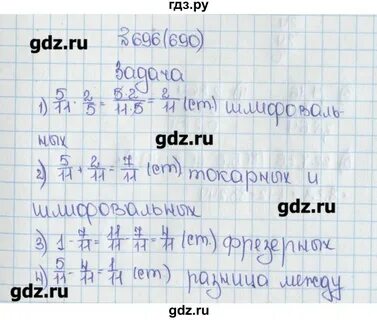 гдз.ру
gdz.ru
gdz.ru
№ 696 (690)
Задача
1) 5/11 · 2/5 = 5·2/11·5 = 2/11 (ст) шлифоваль-
ных
gdz.ru
gdz.ru
2) 5/11 + 2/11 = 7/11 (ст) токарных и
шлифовальных
3) 1 - 7/11 = 11/11 - 7/11 = 4/11 (ст) фрезерных
4) 5/11 - 4/11 = 1/11 (ст) разница между
gdz.ru
gdz.ru